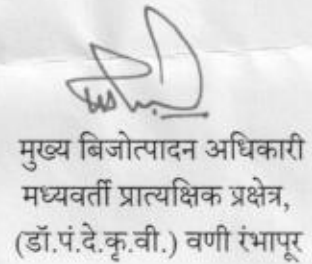 मुख्य बिजोत्पादन अधिकारी
मध्यवर्ती प्रात्यक्षिक प्रक्षेत्र,
(डॉ.पं.दे.कृ.वी.) वणी रंभापूर